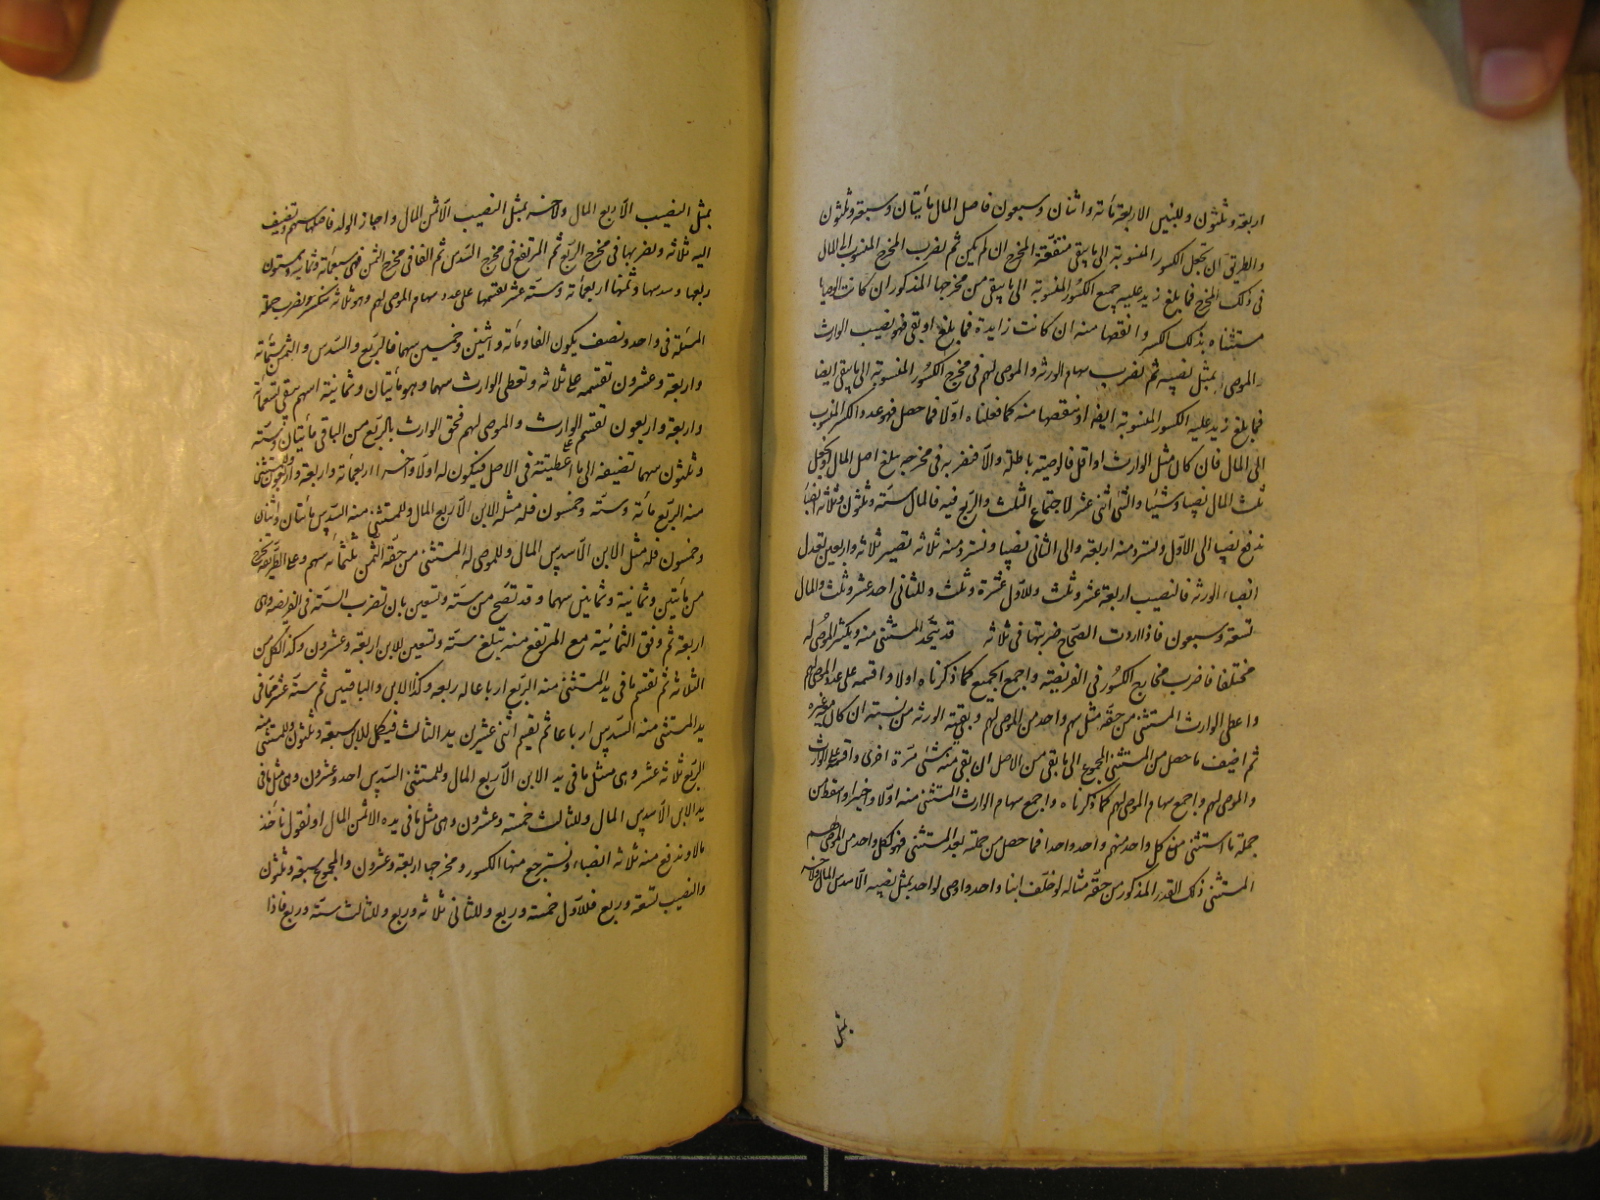 اربعة وثلثون وللبنين الاربعة مأته واثنان وسبعون فاصل المال مأيتان وسبعة وثلثون
والطريق ان تجعل الكسور المنسوبة الى ما يبقى متفقة المخرج ان لم يكن ثم يضرب المخرج المنسوب الى المال
فى ذلك المخرج فما بلغ زيد عليه جميع الكسور المنسوبة الى ما يبقى من مخرجها المذكور ان كانت الوصايا
مستثناه بذلك الكسر وانقصها منه ان كانت زايدة فما بلغ او بقى فهو نصيب الوارث
والموصى بمثل نصيبه ثم تضرب سهام الورثه والموصى لهم فى مخرج الكسور المنسوبة الى ما يبقى ايضا
فما بلغ زيد عليه الكسور المنسوبة ايضا او ننقصها منه كما فعلناه اولا فما حصل فهو عدد الكسر المنسوب
الى المال فان كان مثل الوارث او اقل فالوصية باطلة والا فتضربه فى مخرجه يبلغ اصل المال او تجعل
ثلث المال نصيبا وشيئا والشئ اثنى عشر لاجتماع الثلث والربع فيه فالمال ستة وثلثون وثلثه انصبا
ندفع نصيبا الى الاول ونسترد منه اربعة والى الثانى نصيبا ونسترد منه ثلاثه تصير ثلاثه واربعين تعدل
انصباء الورثه فالنصيب اربعة عشر وثلث وللاول عشرة وثلث وللثانى احد عشر وثلث والمال
تسعة وسبعون فاذا اردت الصحاح ضربتها فى ثلاثه قد يتحد المستثنى منه ويكثر الموصى له
مختلفا فاضرب مخارج الكسور فى الفريضة واجمع الجميع كما ذكرناه اولا واقسمه على عدد الموصى لهم
واعطى الوارث المستثنى من حقه مثل سهم واحد من الموصى لهم وبقية الورثه من نسبته ان كان معه غيره
ثم اضيف ما حصل من المستثنى المجموع الى ما بقى من الاصل ان بقى منه شئ مرة اخرى واقسمه على الوارث
والموصى لهم واجمع سهام الموصى لهم كما ذكرناه واجمع سهام الوارث المستثنى منه اولا واخيرا واسقط من
جملة ما استثنى من كل واحد منهم واحد واحدا فما حصل من جملة بعد المستثنى فهو لكل واحد من الموصى لهم
المستثنى ذلك القدر المذكور من حقه مثاله لو خلف ابنا واحد واوصى لواحد بمثل نصيبه الا سدس المال ولاخر
بمثل
بمثل النصيب الا ربع المال ولاخر بمثل النصيب الا ثمن المال واجاز الولد فاصل سهم وتضيف
اليه ثلاثه وتضربها فى مخرج الربع ثم المرتفع فى مخرج السدس ثم الفا فى مخرج الثمن فهى سبعمائة وثمانية وستون
ربعها وسدسها وثمنها اربعمأته وستة عشر تقسمها على عدد سهام الموصى لهم وهو ثلاثه تنكسر فنضرب جملة
المسئلة فى واحد ونصف يكون الفا ومأته واثنين وخمسين سهما فالربع والسدس والثمن ستمأته
واربعة وعشرون تقسمه على ثلاثه وتعطى الوارث سهما وهو مأيتان وثمانية اسهم يبقى تسعمأته
واربعة واربعون تقسم الوارث والموصى لهم فحق الوارث بالربع من الباقى مأيتان وستة
وثلثون سهما تضيفه الى ما اعطيته فى الاصل فيكون له اولا واخيرا اربعمأته واربعة واربعون وللمستثنى
منه الربع مائة وستة وخمسون فله مثل الابن الا ربع المال وللمستثنى منه السدس مأيتان واثنان
وخمسون فله مثل الابن الا سدس المال وللموصى له المستثنى من حقه الثمن ثلثمأته سهم وعلى الطريقة تخرج
من مأيتين وثمانية وثمانين سهما وقد تصح من ستة وتسعين بان تضرب الستة فى الفريضة وهى
اربعة ثم وفق الثمانية مع المرتفع منه تبلغ ستة وتسعين للابن اربعة وعشرون وكذا لكل من
الثلاثه ثم تقسم ما فى يد المستثنى منه الربع ارباعا له ربعه وكذا للابن والباقيين ثم ستة عشر مما فى
يد المستثنى منه السدس ارباعا ثم يقسم اثنى عشر من يد الثالث فيكمل للابن سبعة وثلثون وللمستثنى منه
الربع ثلاثه عشر وهى مثل ما فى يد الابن الا ربع المال وللمستثنى السدس احد وعشرون وهى مثل ما فى
يد الابن الا سدس المال وللثالث خمسة وعشرون وهى مثل ما فى يده الا ثمن المال او نقول ناخذ
مالا وندفع منه ثلاثه انصباء ونسترجع منها الكسور ومخرجها اربعة وعشرون والمجموع سبعة وثلثون
والنصيب تسعة وربع فللاول خمسة وربع وللثانى ثلاثه وربع وللثالث ستة وربع فاذا